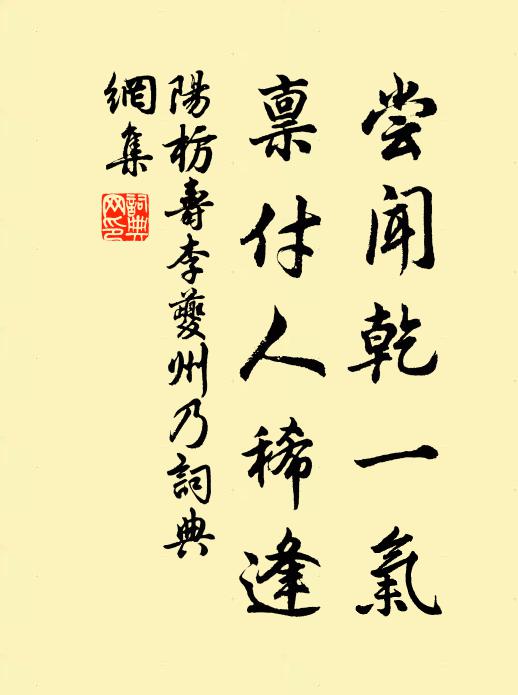 尝聞乾一氣
禀付人稀逢
陽枋壽李夔州乃詞典
網集
詞典
网印